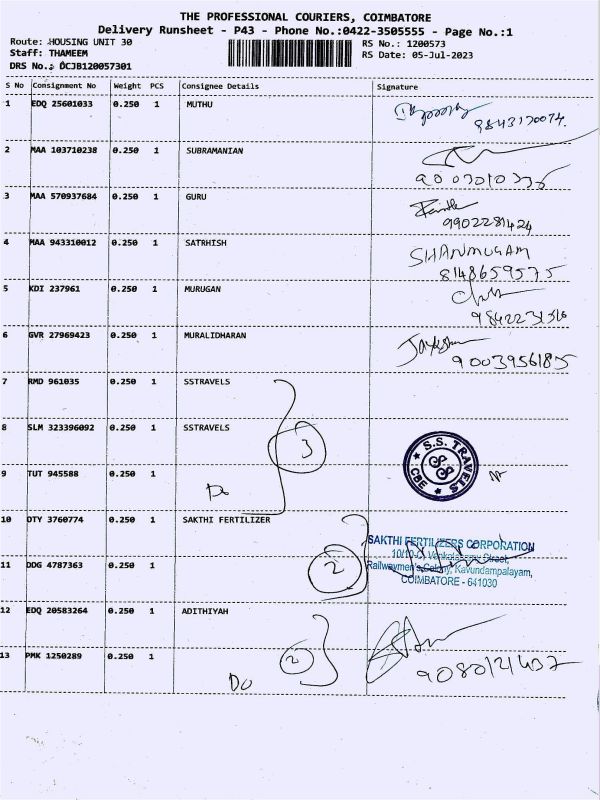 THE PROFESSIONAL COURIERS, COIMBATORE
Delivery Runsheet - P43 - Phone No.:0422-3505555 - Page No.:1
Route: HOUSING UNIT 30 RS No.: 1200573
Staff: THAMEEM RS Date: 05-Jul-2023
DRS No.: OCJB120057301
S No Consignment No Weight PCS Consignee Details Signature
1 EDQ 25601033 0.250 1 MUTHU
9843120074.
2 MAA 103710238 0.250 1 SUBRAMANIAN
9003010335
3 MAA 570937684 0.250 1 GURU
9902281424
4 MAA 943310012 0.250 1 SATRHISH SHANMUGAM
8148659575
5 KDI 237961 0.250 1 MURUGAN
9842231316
6 GVR 27969423 0.250 1 MURALIDHARAN
9003956185
7 RMD 961035 0.250 1 SSTRAVELS
8 SLM 323396092 0.250 1 SSTRAVELS
3 S.S. TRAVELS CBE
9 TUT 945588 0.250 1
Do
10 OTY 3760774 0.250 1 SAKTHI FERTILIZER
SAKTHI FERTILIZERS CORPORATION
10/10-C, Venkatasamy Street,
11 DDG 4787363 0.250 1 2 Railwaymen's Colony, Kavundampalayam,
COIMBATORE - 641030
12 EDQ 20583264 0.250 1 ADITHIYAH
13 PMK 1250289 0.250 1 2
9080121437
Do